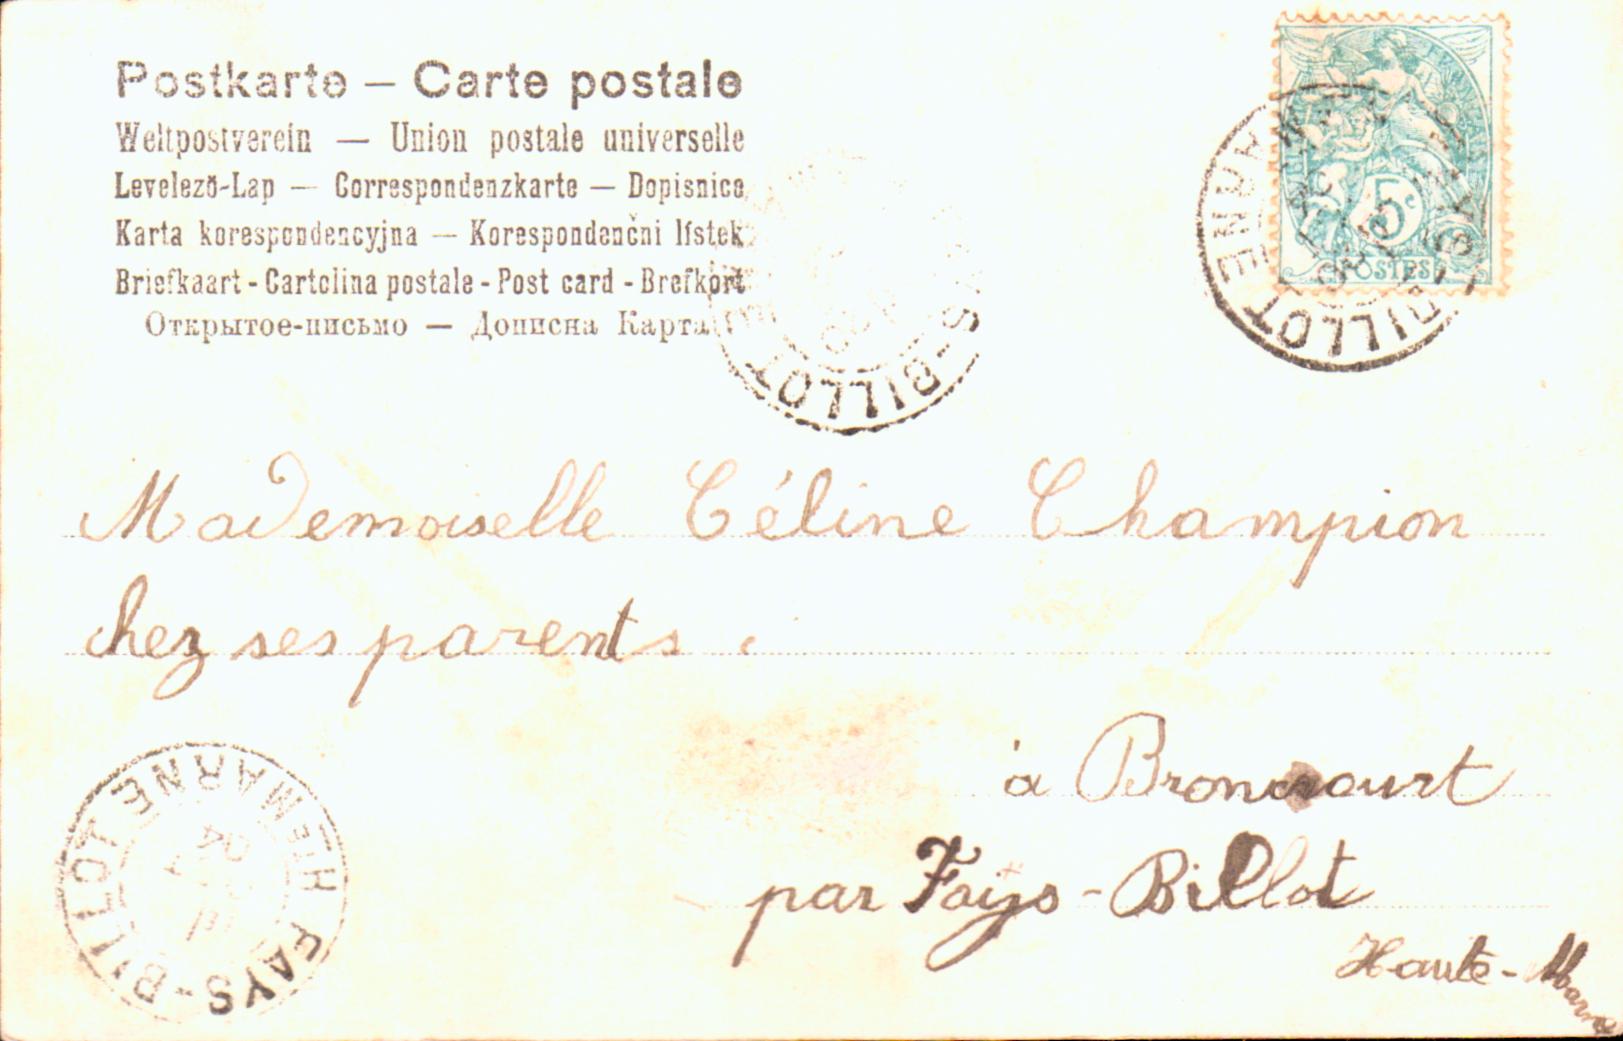 Postkarte – Carte postale
Weltpostverein — Union postale universelle
Levelező-Lap — Correspondenzkarte — Dopisnice
Karta korespondencyjna — Korespondenční lístek
Briefkaart - Cartolina postale - Post card - Brefkort
Открытое-письмо — Дописна Карта
5c
POSTES
BILLOT
S-BILLOT
Mademoiselle Céline Champion
chez ses parents.
à Broncourt
par Fays-Billot
Haute-Marne
FAYS-BILLOT
HTE MARNE
04